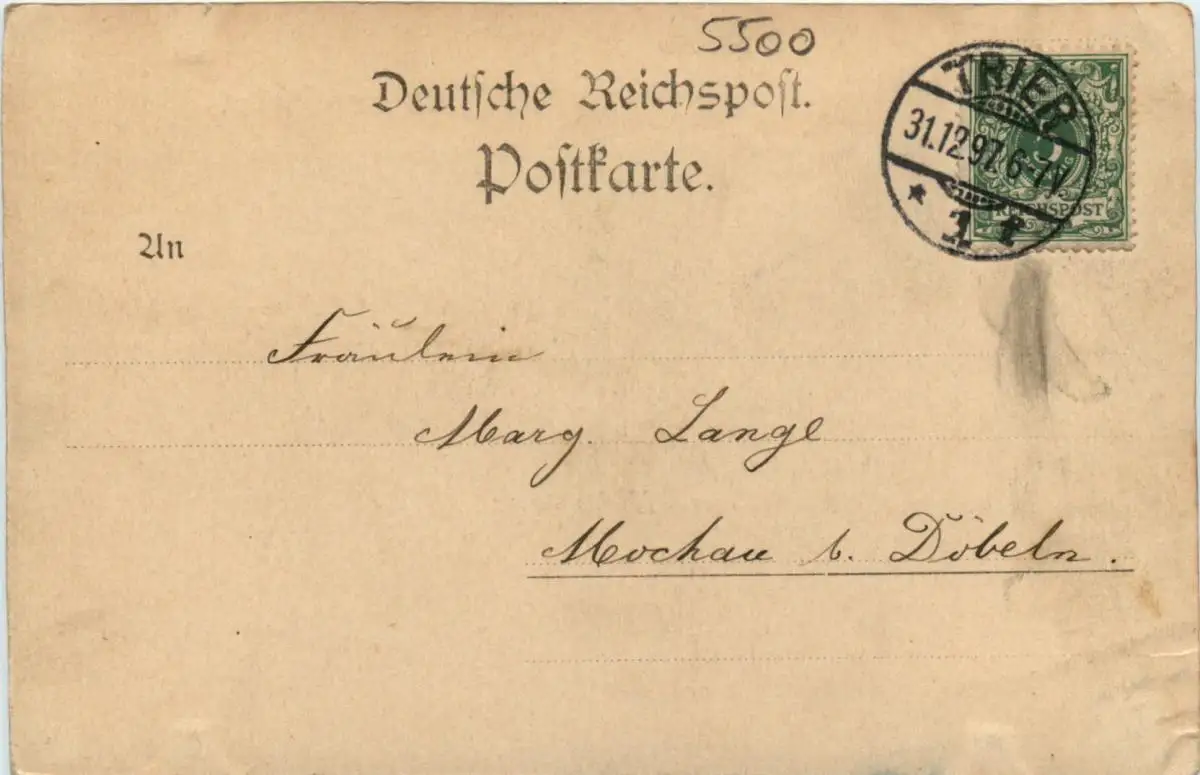 5500
Deutsche Reichspost.
Postkarte.
TRIER
31.12.97. 6-7V.
* 1 f
5
REICHSPOST
An
Fräulein
Marg. Lange
Mochau b. Döbeln.